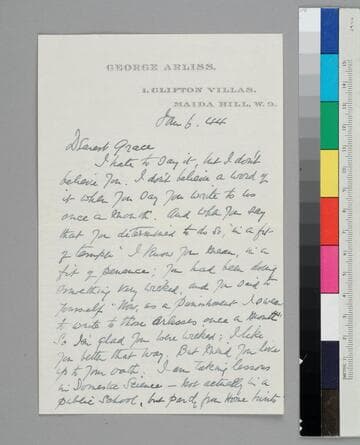 GEORGE ARLISS.
1. CLIFTON VILLAS.
MAIDA HILL, W. 9.
Jan 6. 44
Dearest Grace
I hate to say it, but I don't
believe you. I don't believe a word of
it when you say you write to us
once a month. And when you say
that you determined to do so, "in a fit
of temper" I know you mean, in a
fit of penance; you had been doing
something very wicked, and you said to
yourself "Now, as a punishment I swear
to write to those Arlisses once a month"
So I'm glad you were wicked; I like
you better that way. But mind you live
up to your oath. I am taking lessons
in Domestic Science – not actually in a
public school, but partly from home hints